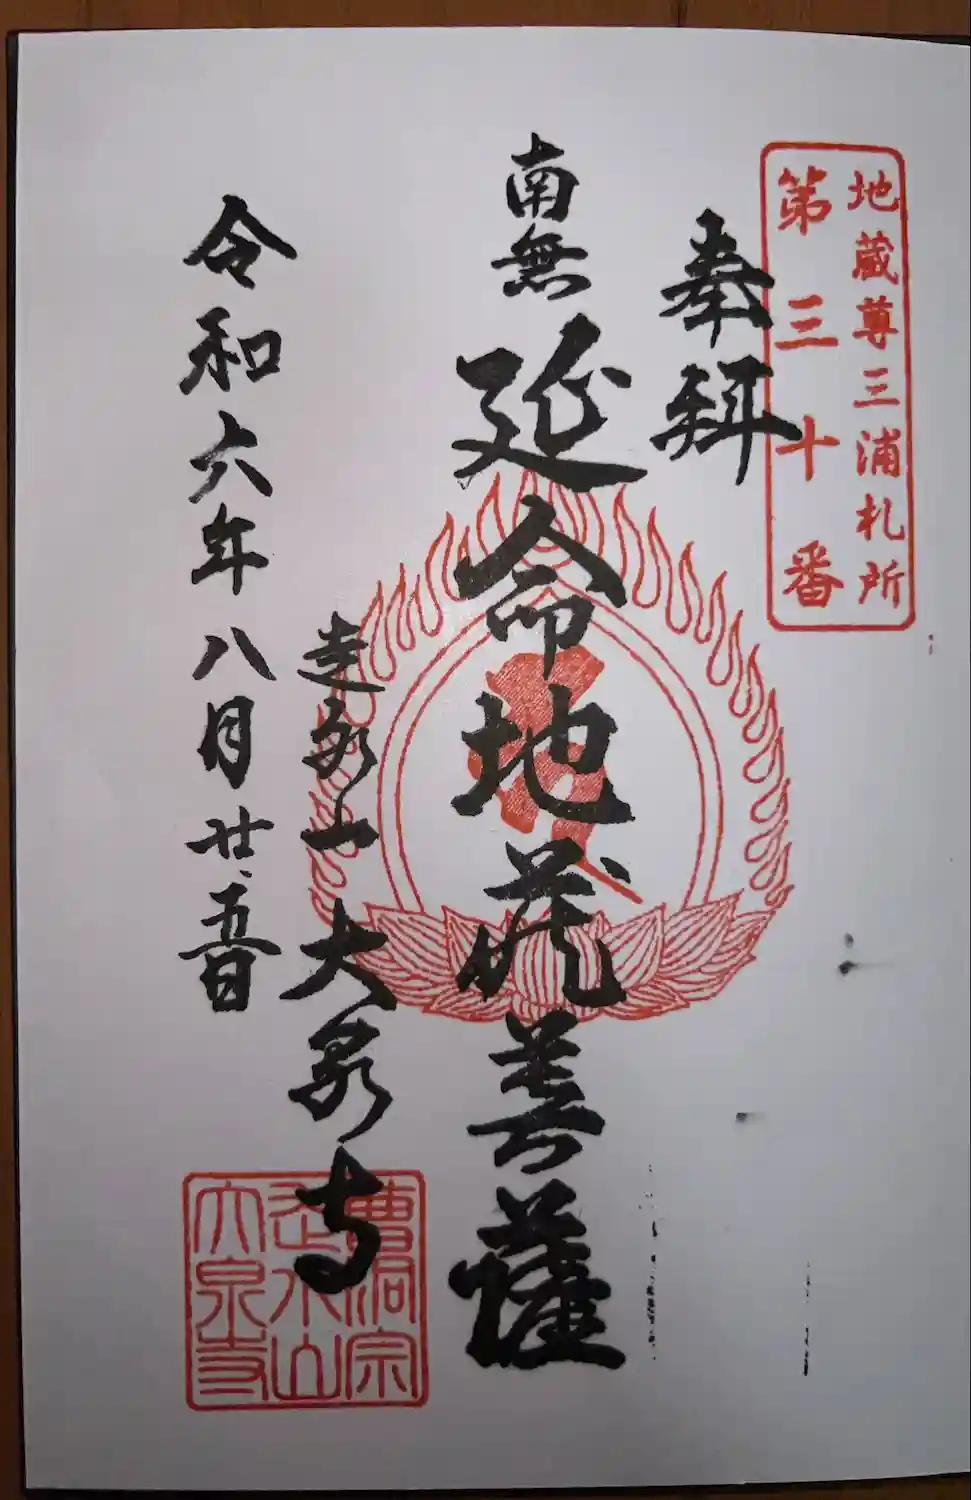 地蔵尊三浦札所
第三十番
奉拝
南無延命地蔵菩薩
走水山大泉寺
令和六年八月廿五日
曹洞宗
走水山
大泉寺